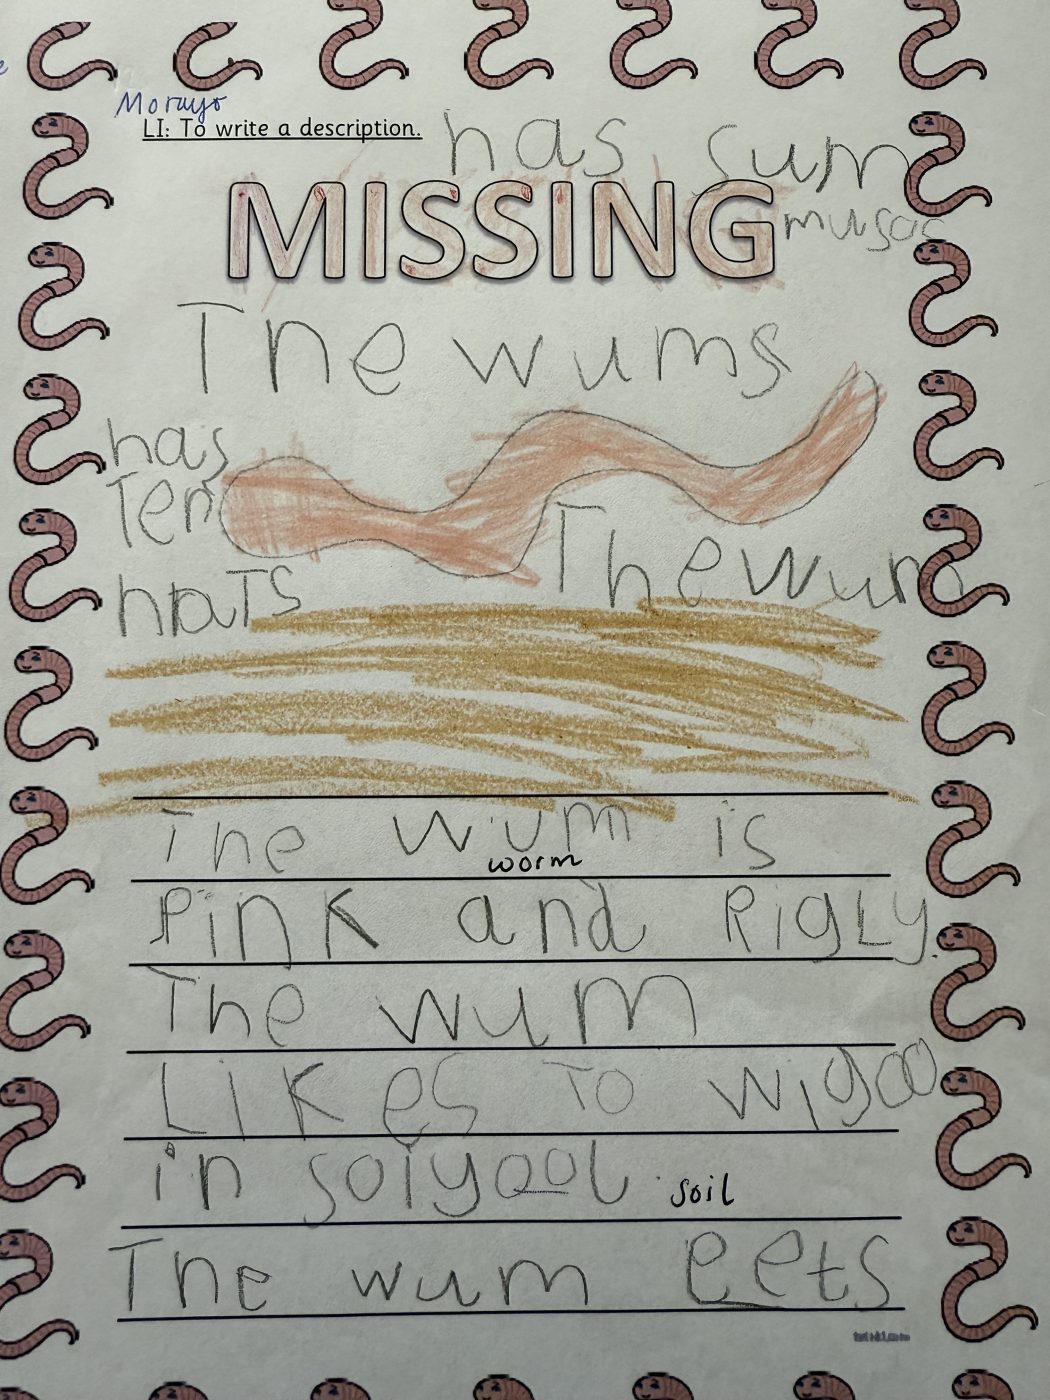 Morayo
LI: To write a description.
has sum
MISSING
musac
The wums
has
Ten
hats
The wum
The wum is
worm
Pink and RigLy.
The wum
Likes To wigoo
in soiyool. soil
The wum eets